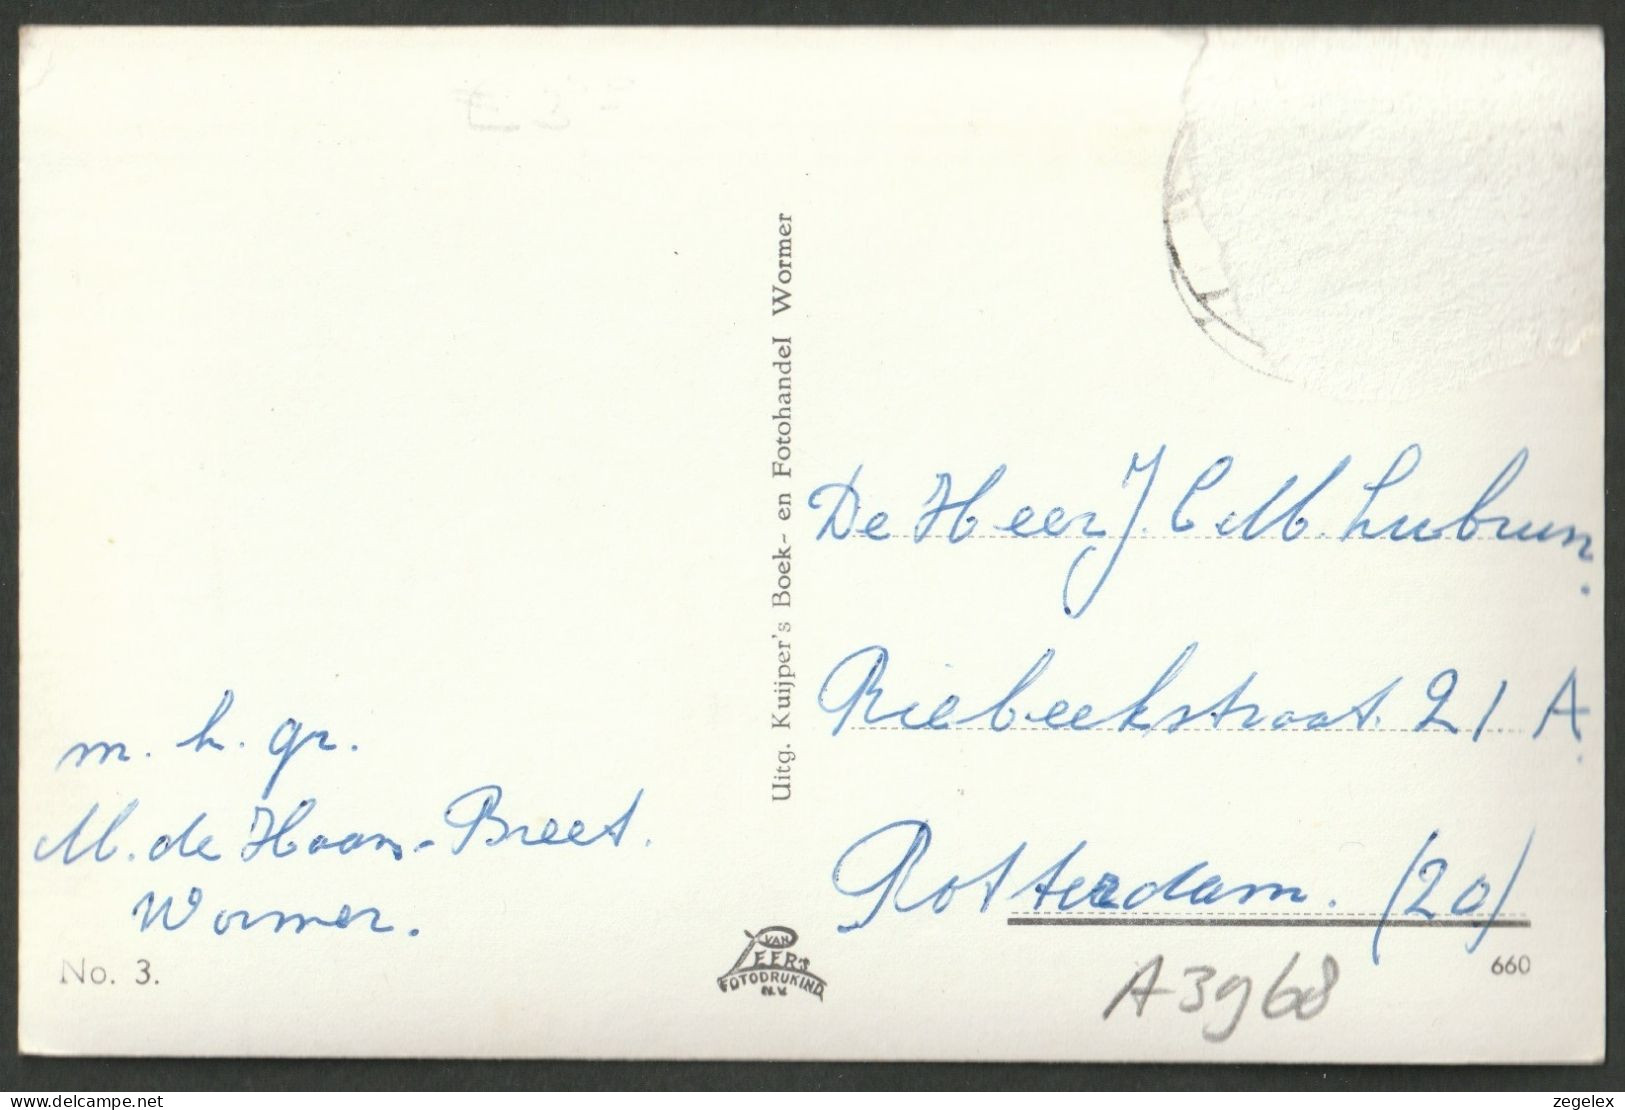 m. h. gr.
M. de Haan-Breet.
Wormer.
No. 3.
Uitg. Kuijper's Boek- en Fotohandel Wormer
VAN
LEER'S
FOTODRUKIND
N.V.
De Heer J. C. M. Lubrun.
Riebeekstraat. 21. A.
Rotterdam. (20)
660
A3968
delcampe.net
zegelex